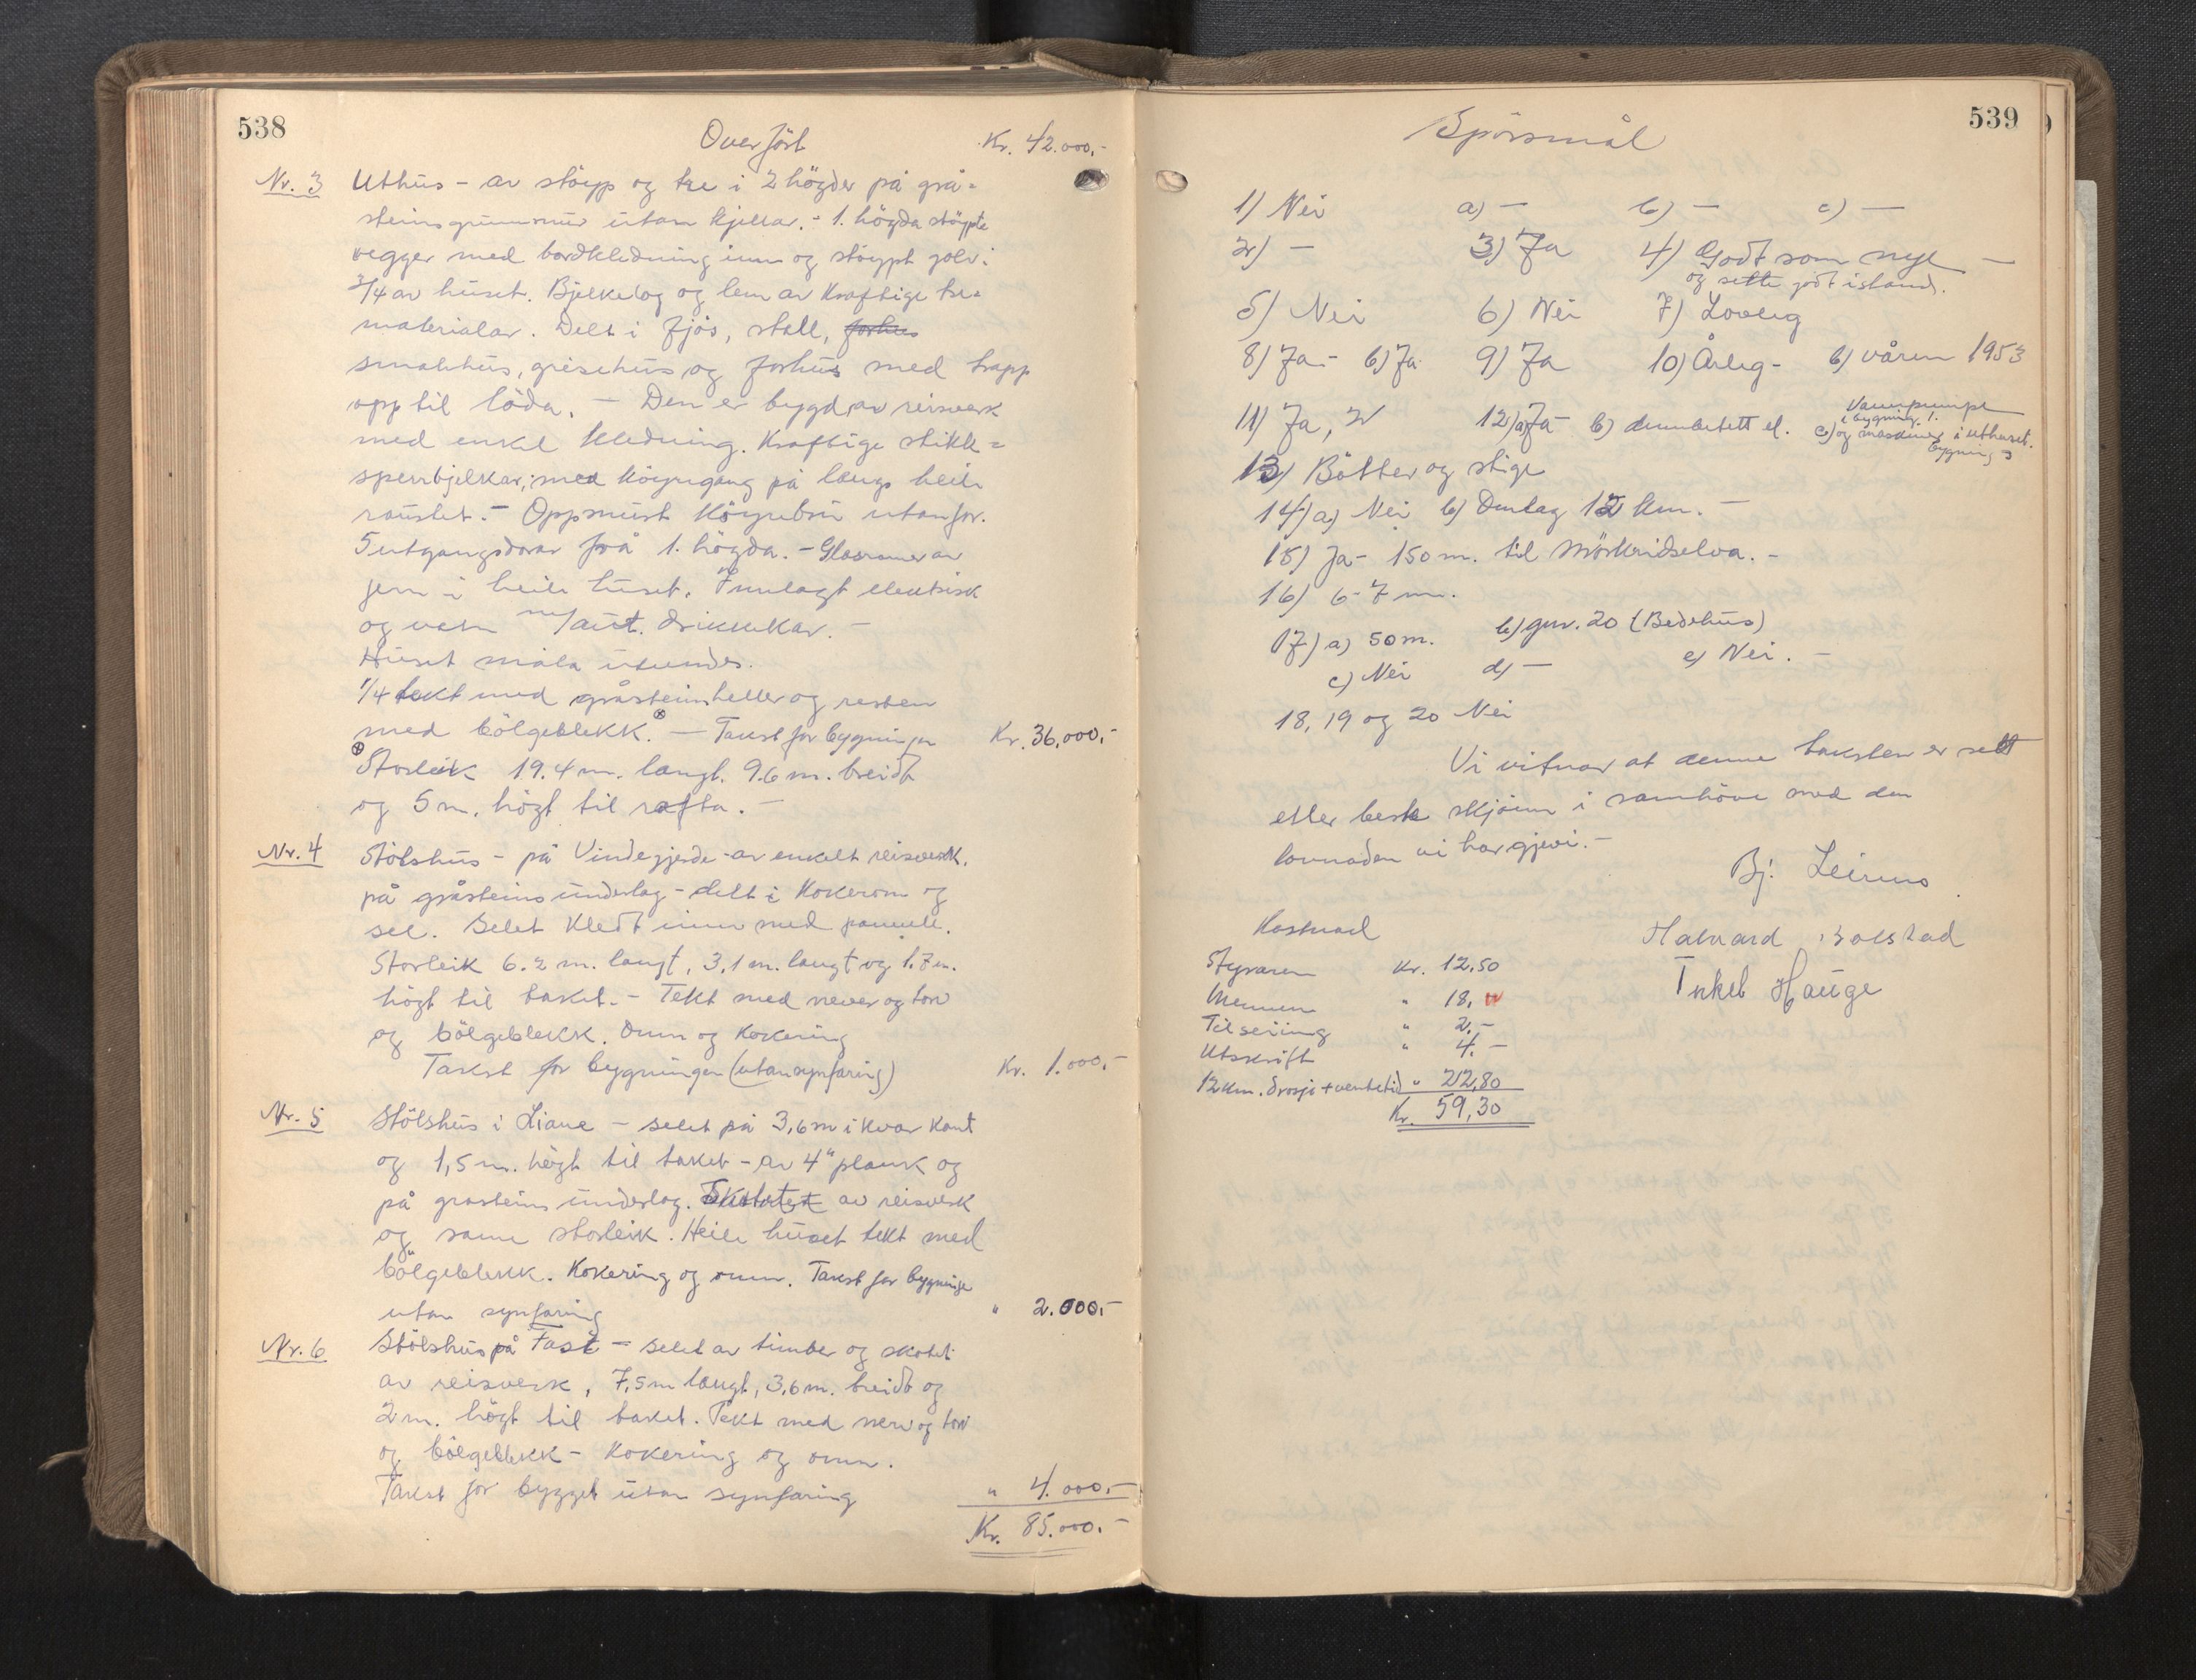 538
Overfört Kr. 42.000,-
Nr. 3 Uthus - av stöyp og tre i 2 högder på grå=
steinsgrunnmur utan kjellar. - 1. högda stöypte
vegger med bordkledning inn og stöypt golv i
3/4 av huset. Bjelkelag og lem av kraftige tre=
materialar. Delt i fjös, stall, forhus
smalehus, grisehus og forhus med trapp
opp til löda. - Den er bygd av reisverk
med enkel kledning. Kraftige stikk=
sperrbjelkar, med köyregang på langs heile
raustet. - Oppmurt köyrebru utanfor.
5 utgangsdorar frå 1. högda. - Glasramer av
jern i heile huset. Innlagt elektrisk
og vatn m/aut. drikkekar. -
Huset måla utvendes.
1/4 tekt med gråsteinheller og resten
med bölgeblekk. ⊗ - Takst for bygningen Kr. 36,000,-
⊗ Storleik 19.4 m. langt. 9.6 m. breidt
og 5 m. högt til rafta. -
Nr. 4 Stölshus - på Vindegjerde - av enkelt reisverk.
på gråsteins underlag - delt i kokerom og
sel. Selet kledt inn med panel.
Storleik 6.2 m. langt, 3,1 m. langt og 1.7 m.
högt til taket. - Tekt med never og torv
og bölgeblekk. Omn og kokering
Takst for bygningen (utan synfaring) Kr. 1.000,-
Nr. 5 Stölshus i Liane - selet på 3,6 m i kvar kant
og 1,5 m. högt til taket - av 4" plank og
på gråsteins underlag. Skotet av reisverk
og same storleik. Heile huset tekt med
bölgeblekk. Kokering og omn. Takst for bygningen
utan synfaring " 2.000,-
Nr. 6 Stölshus på Fast - selet av timber og skotet
av reisverk, 7,5 m langt, 3,6 m. breidt og
2 m. högt til taket. Tekt med never og torv
og bölgeblekk - kokering og omn.
Takst for bygget utan synfaring " 4.000,-
Kr. 85.000.-
539
Spörsmål
1) Nei a) - b) - c) -
2) - 3) Ja 4) Godt som nye -
og sette godt istand.
5) Nei 6) Nei 7) Lovleg
8) Ja - b) Ja 9) Ja 10) Årleg - b) våren 1953
11) Ja, 2 12) a) Ja - b) el. c) Vasspumpe
i bygning 1.
og maskiner i uthuset.
bygning 3
13) Bötter og stige
14) a) Nei b) Omlag 12 km. -
15) Ja - 150 m. til Mörkridselva. -
16) 6-7 m.
17) a) 50 m. b) gnr. 20 (Bedehus)
c) Nei d) - e) Nei. -
18, 19 og 20 Nei
Vi vitnar at denne taksten er sett
etter beste skjönn i samhöve med den
lovnaden vi har gjevi. -
Bj. Leirmo
Halvard Bolstad
Torkel Hauge
Kostnad
Styraren Kr. 12.50
Mennene " 18,
Tilseiing " 2.-
Utskrift " 4.-
12 km. drosje + ventetid " 22,80
Kr. 59,30